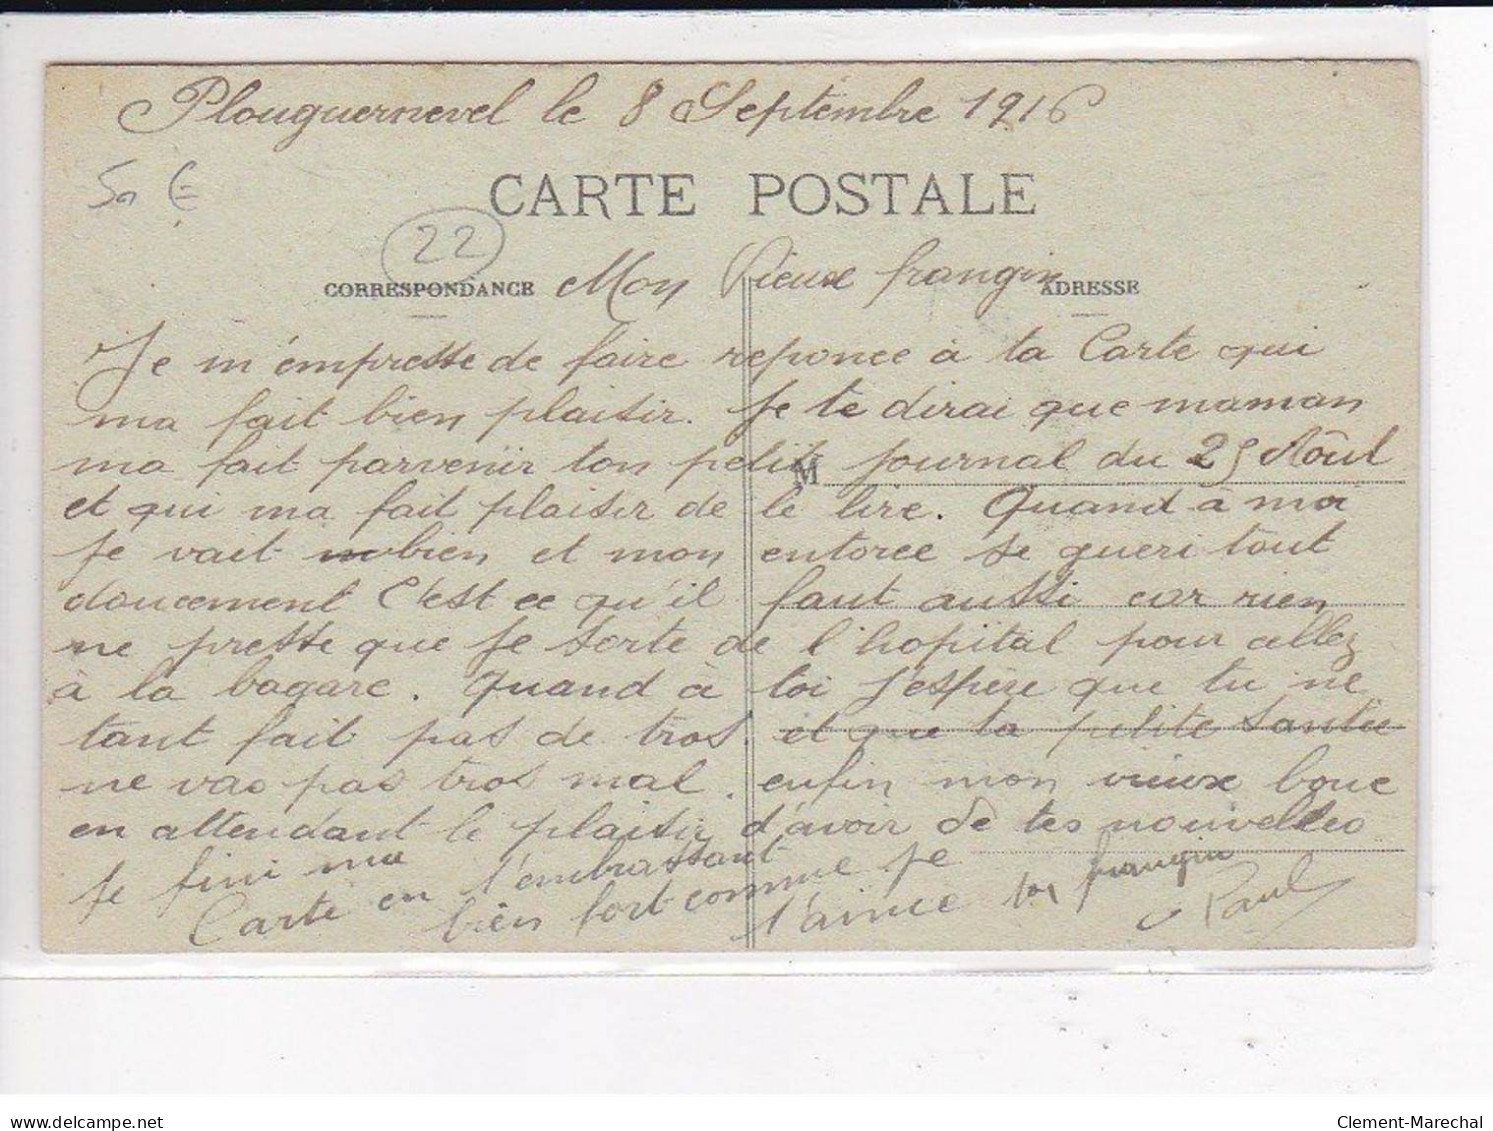 Plouguernevel le 8 Septembre 1916
50 €
CARTE POSTALE
22
CORRESPONDANCE
Mon Vieux frangin
ADRESSE
Je m'émpresse de faire reponce à ta Carte qui
ma fait bien plaisir. Je te dirai que maman
ma fait parvenir ton petit journal du 25 Aôut
M
et qui ma fait plaisir de le lire. Quand a moi
je vait bien et mon entorce se gueri tout
doucement C'est ce qu'il faut aussi car rien
ne presse que je sorte de l'hopital pour allez
à la bagare. Quand à toi j'espère que tu ne
tant fait pas de tros. et que ta petite santée
ne vas pas tros mal. enfin mon vieux bouc
en attendant le plaisir d'avoir de tes nouvelles
Je fini ma Carte en t'embrassant
bien fort comme je t'aime ton frangin
Paul
Clement-Marechal
www.delcampe.net